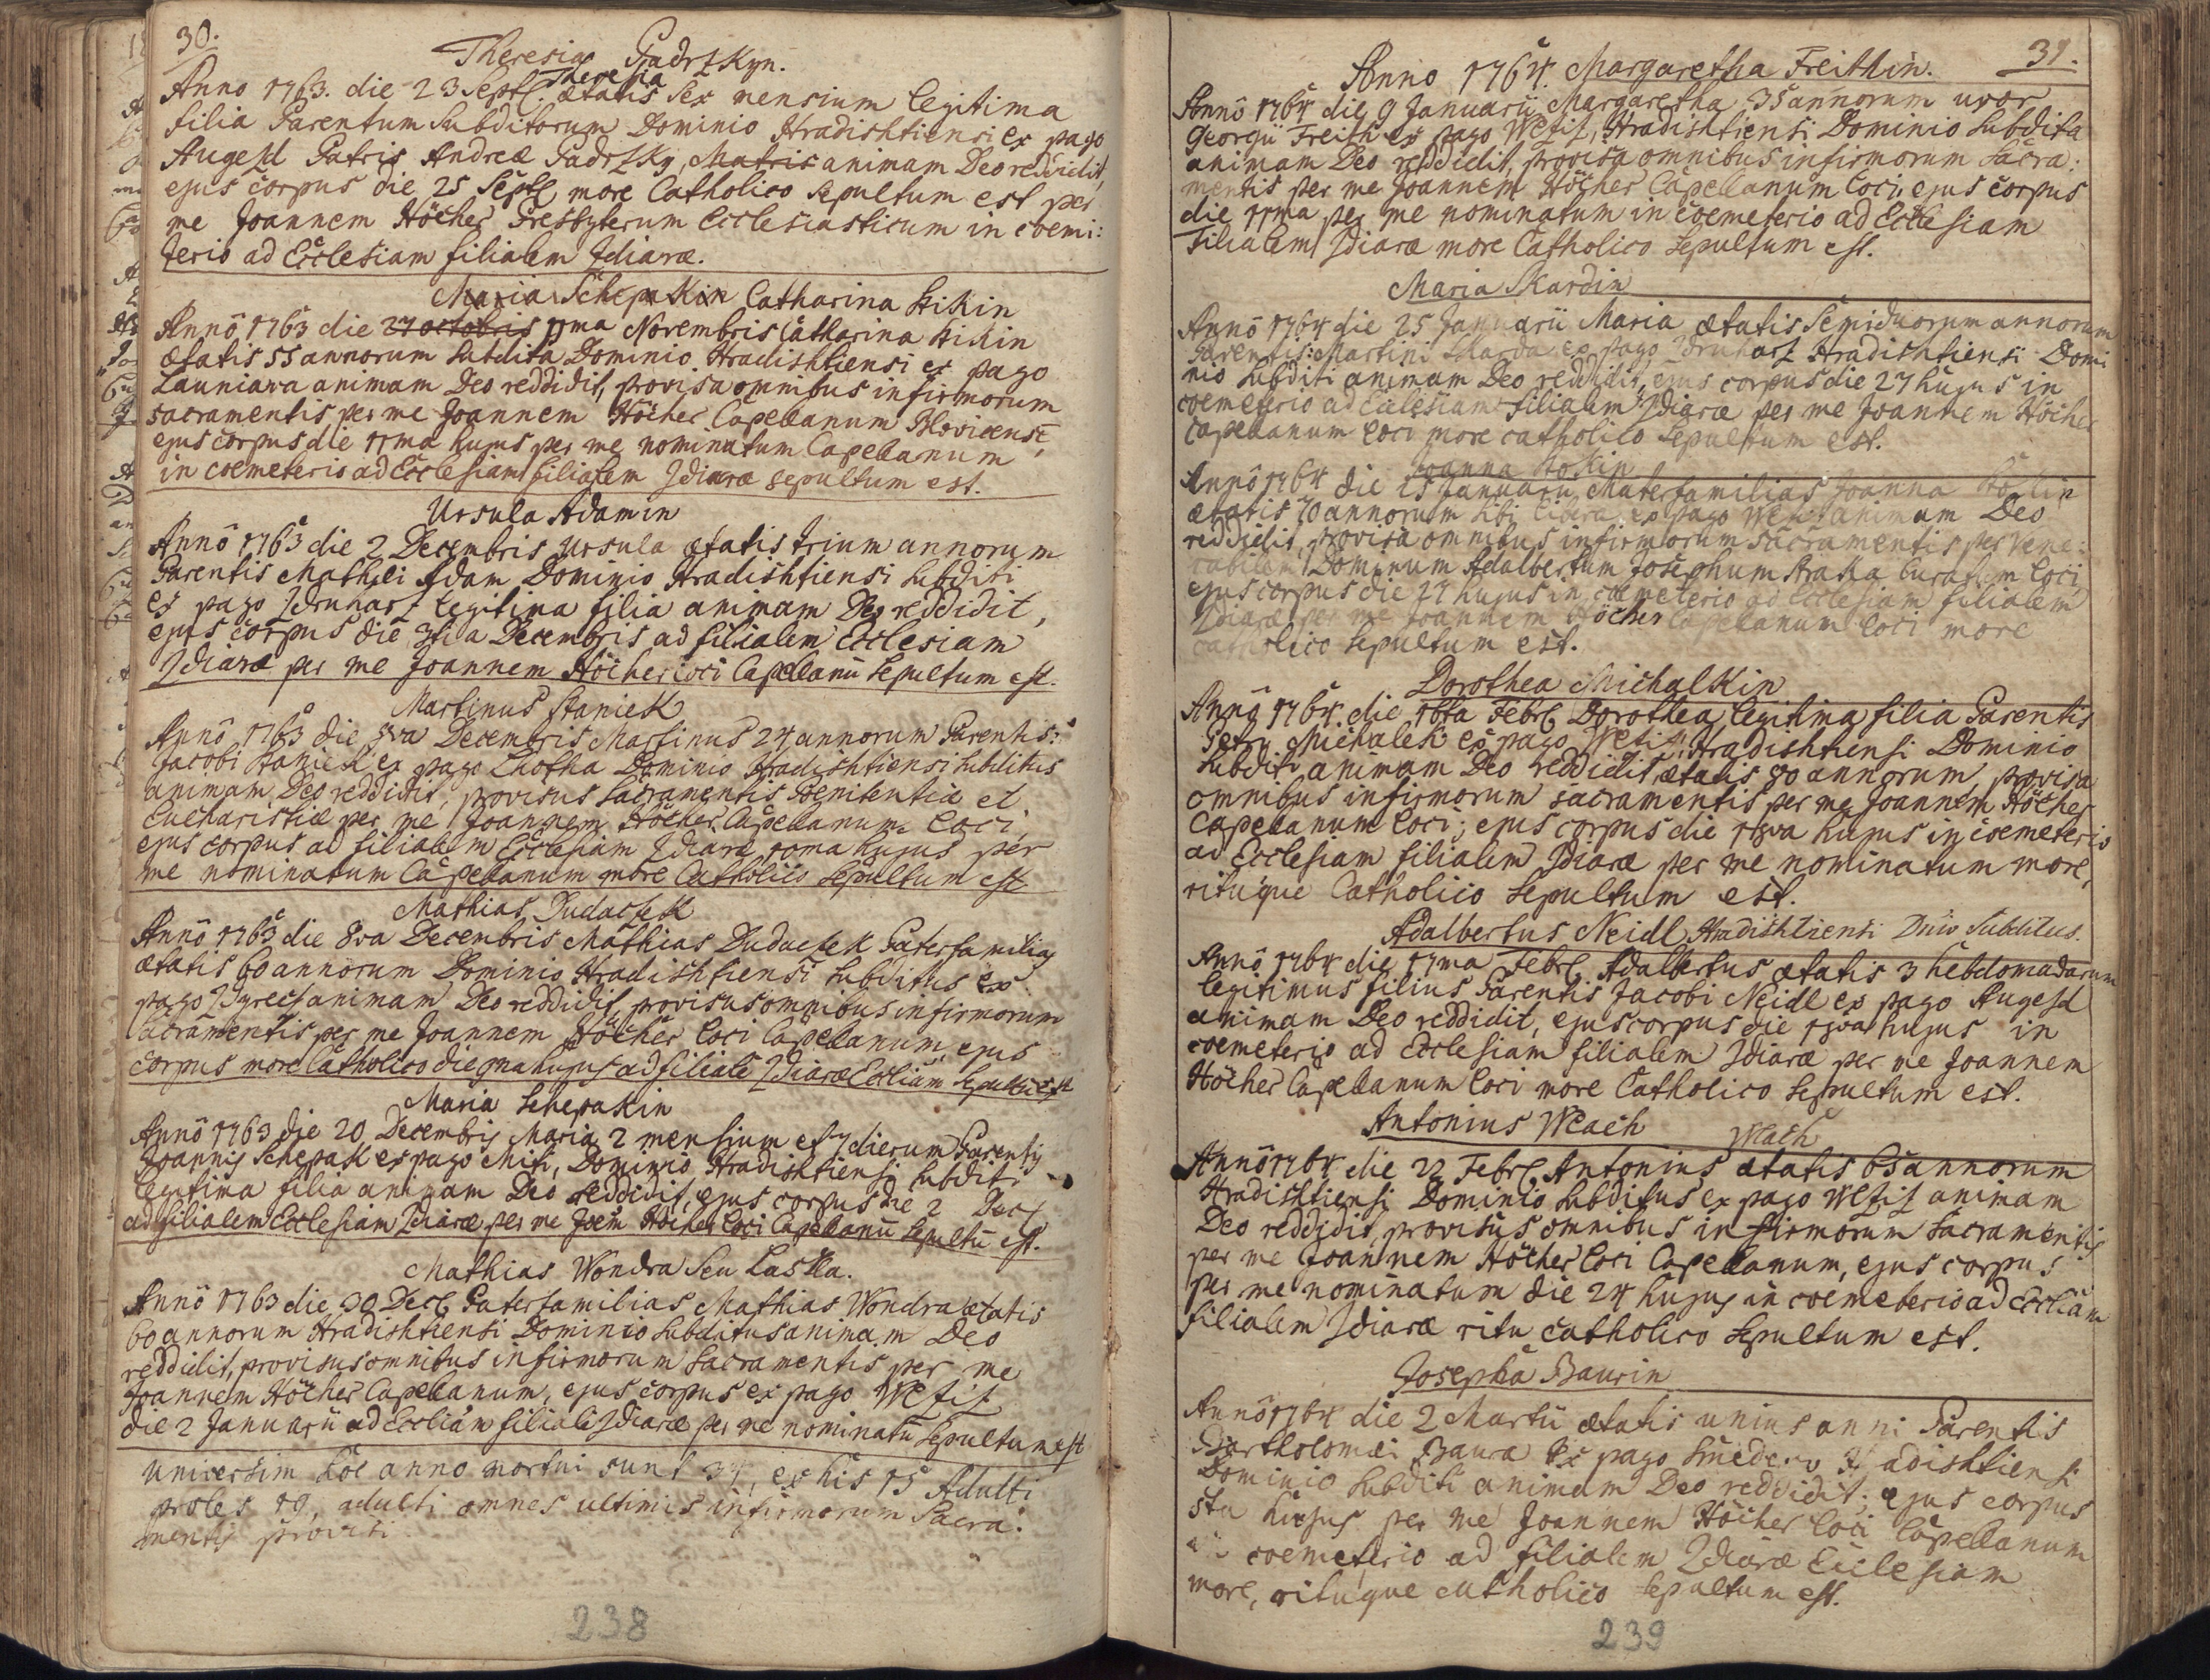 30.
Theresia Padrzkyn.
Anno 1763. die 23 Septb. Theresia ætatis sex mensium legitima
filia Parentum Subditorum Dominio Hradishtiensi ex pago
Augezd Patris Andreæ Padrzky, Matris animam Deo reddidit,
ejus corpus die 25 Septb more Catholico sepultum est per
me Joannem Höcher Presbyterum Ecclesiasticum in coemi:
terio ad Ecclesiam filialem Zdiaræ.
Maria Schepakin Catharina Hikin
Annô 1763 die 27 octobris 11ma Novembris Catharina Hikin
ætatis 55 annorum subdita Dominio Hradishtiensi ex pago
Launiawa animam Deo reddidit, provisa omnibus infirmorum
sacramentis per me Joannem Höcher Capellanum Blovicensē,
ejus corpus die 11ma hujus per me nominatum Capellanum
in coemeterio ad Ecclesiam filialem Zdiaræ sepultum est.
Ursula Adamin
Annô 1763 die 2 Decembris Ursula ætatis trium annorum
Parentis Mathæi Adam Dominio Hradishtiensi Subditi
ex pago Zdruharz legitima filia animam Deo reddidit,
ejus corpus die 3tia Decembris ad filialem Ecclesiam
Zdiaræ per me Joannem Höcher loci Capellanū Sepultum est.
Martinus Staniek
Annô 1763 die 8va Decembris Martinus 24 annorum Parentis:
Jacobi Staniek ex pago Lhotha Dominio Hradishtiensi subditus
animam Deo reddidit, provisus Sacramentis Poenitentiæ et
Eucharistiæ per me Joannem Höcher Capellanum loci,
ejus corpus ad filialem Ecclesiam Zdiaræ 10ma hujus per
me nominatum Capellanum more Catholico Sepultum est
Mathias Dudaczek
Annô 1763 die 8va Decembris Mathias Dudaczek Paterfamilias
ætatis 60 annorum Dominio Hradishtiensi subditus ex
pago animam Deo reddidit, provisus omnibus infirmorum
sacramentis per me Joannem Höcher loci Capellanum, ejus
corpus more Catholico die 9na hujus ad filialē Zdiaræ Eccliam Sepultū est
Maria Schepakin
Annô 1763 die 20 Decembris Maria 2 mensium et 7 dierum Parentis
Joannis Schepak ex pago Miti, Dominio Hradishtiensi subditi
legitima filia animam Deo reddidit, ejus corpus die 2 Decb
ad filialem Ecclesiam Zdiaræ per me Joem Höcher loci Capellanū Sepultū est.
Mathias Wondra Seu Laska.
Annô 1763 die 30 Decb Paterfamilias Mathias Wondra ætatis
60 annorum Hradishtiensi Dominio subditus animam Deo
reddidit, provisus omnibus infirmorum sacramentis per me
Joannem Höcher Capellanum, ejus corpus ex pago Wezis
die 2 Januarii ad Eccliam filialē Zdiaræ per me nominatū Sepultum est
Universim hoc anno mortui sunt 34, ex his 15 Adulti
proles 19, adulti omnes ultimis infirmorum Sacra:
mentis provisi
238
31.
Anno 1764. Margaretha Freithin.
Annô 1764 die 9 Januarii Margaretha 35 annorum uxor
Georgii Freith ex pago Wezis, Hradishtiensi Dominio Subdita
animam Deo reddidit, provisa omnibus infirmorum sacra:
mentis per me Joannem Höcher Capellanum loci, ejus corpus
die 11ma per me nominatum in coemeterio ad Ecclesiam
filialem Zdiaræ more Catholico Sepultum est.
Maria Skardin
Annô 1764 die 25 Januarii Maria ætatis Semiduorum annorum
Parentis: Martini Skarda ex pago Zdruharz Hradishtiensi Domi
nio subditi animam Deo reddidit, ejus corpus die 27 hujus in
coemeterio ad Ecclesiam filialem Zdiaræ per me Joannem Höcher
Capellanum loci more catholico Sepultum est.
Joanna
Annô 1764 die 25 Januarii Materfamilias Joanna
ætatis 70 annorum sibi libera ex pago Wezis animam Deo
reddidit, provisa omnibus infirmorum sacramentis per vene:
rabilem Dominum Adalbertum Josephum Straka Curatum loci,
ejus corpus die 27 hujus in coemeterio ad Ecclesiam filialem
Zdiaræ per me Joannem Höcher Capellanum loci more
catholico Sepultum est.
Dorothea Michalkin
Annô 1764 die 16ta Febrb Dorothea legitima filia Parentis
Petri Michalek ex pago Wezis Hradishtiensi Dominio
Subditi animam Deo reddidit ætatis 80 annorum, provisa
omnibus infirmorum sacramentis per me Joannem Höcher
Capellanum loci; ejus corpus die 18va hujus in coemeterio
ad Ecclesiam filialem Zdiaræ per me nominatum more,
rituque Catholico Sepultum est.
Adalbertus Neidl Hradishtiensi Dnio Subditus.
Annô 1764 die 17ma Febrb Adalbertus ætatis 3 hebdomadarum
legitimus filius Parentis Jacobi Neidl ex pago Augezd
animam Deo reddidit, ejus corpus die 18va hujus in
coemeterio ad Ecclesiam filialem Zdiaræ per me Joannem
Höcher Capellanum loci more Catholico Sepultum est.
Antonius Wlach Wlach
Annô 1764 die 22 Febrb Antonius ætatis 65 annorum
Hradishtiensi Dominio subditus ex pago Wezis animam
Deo reddidit, provisus omnibus infirmorum sacramentis
per me Joannem Höcher loci Capellanum, ejus corpus
per me nominatum die 24 hujus in coemeterio ad Eccliam
filialem Zdiaræ ritu catholico Sepultum est.
Josepha Baurin
Annô 1764 die 2 Martii ætatis unius anni Parentis
Bartholomæi Baura ex pago Hradishtiensi
Dominio Subditi animam Deo reddidit; ejus corpus
5ta hujus per me Joannem Höcher loci Capellanum
in coemeterio ad filialem Zdiaræ Ecclesiam
more, rituque catholico Sepultum est.
239